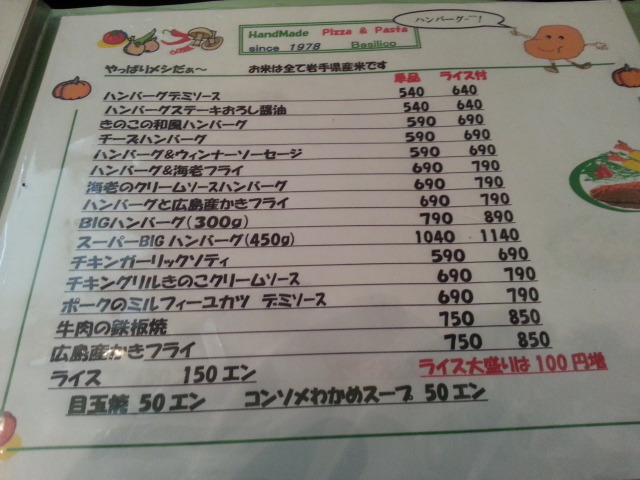 HandMade Pizza & Pasta
since 1978 Basilico
ハンバーグー!
やっぱりメシだぁ～ お米は全て岩手県産米です
単品 ライス付
ハンバーグデミソース 540 640
ハンバーグステーキおろし醤油 540 640
きのこの和風ハンバーグ 590 690
チーズハンバーグ 590 690
ハンバーグ&ウィンナーソーセージ 590 690
ハンバーグ&海老フライ 690 790
海老のクリームソースハンバーグ 690 790
ハンバーグと広島産かきフライ 690 790
BIGハンバーグ(300g) 790 890
スーパーBIGハンバーグ(450g) 1040 1140
チキンガーリックソティ 590 690
チキングリルきのこクリームソース 690 790
ポークのミルフィーユカツ デミソース 690 790
牛肉の鉄板焼 750 850
広島産かきフライ 750 850
ライス 150エン ライス大盛りは100円増
目玉焼 50エン コンソメわかめスープ 50エン